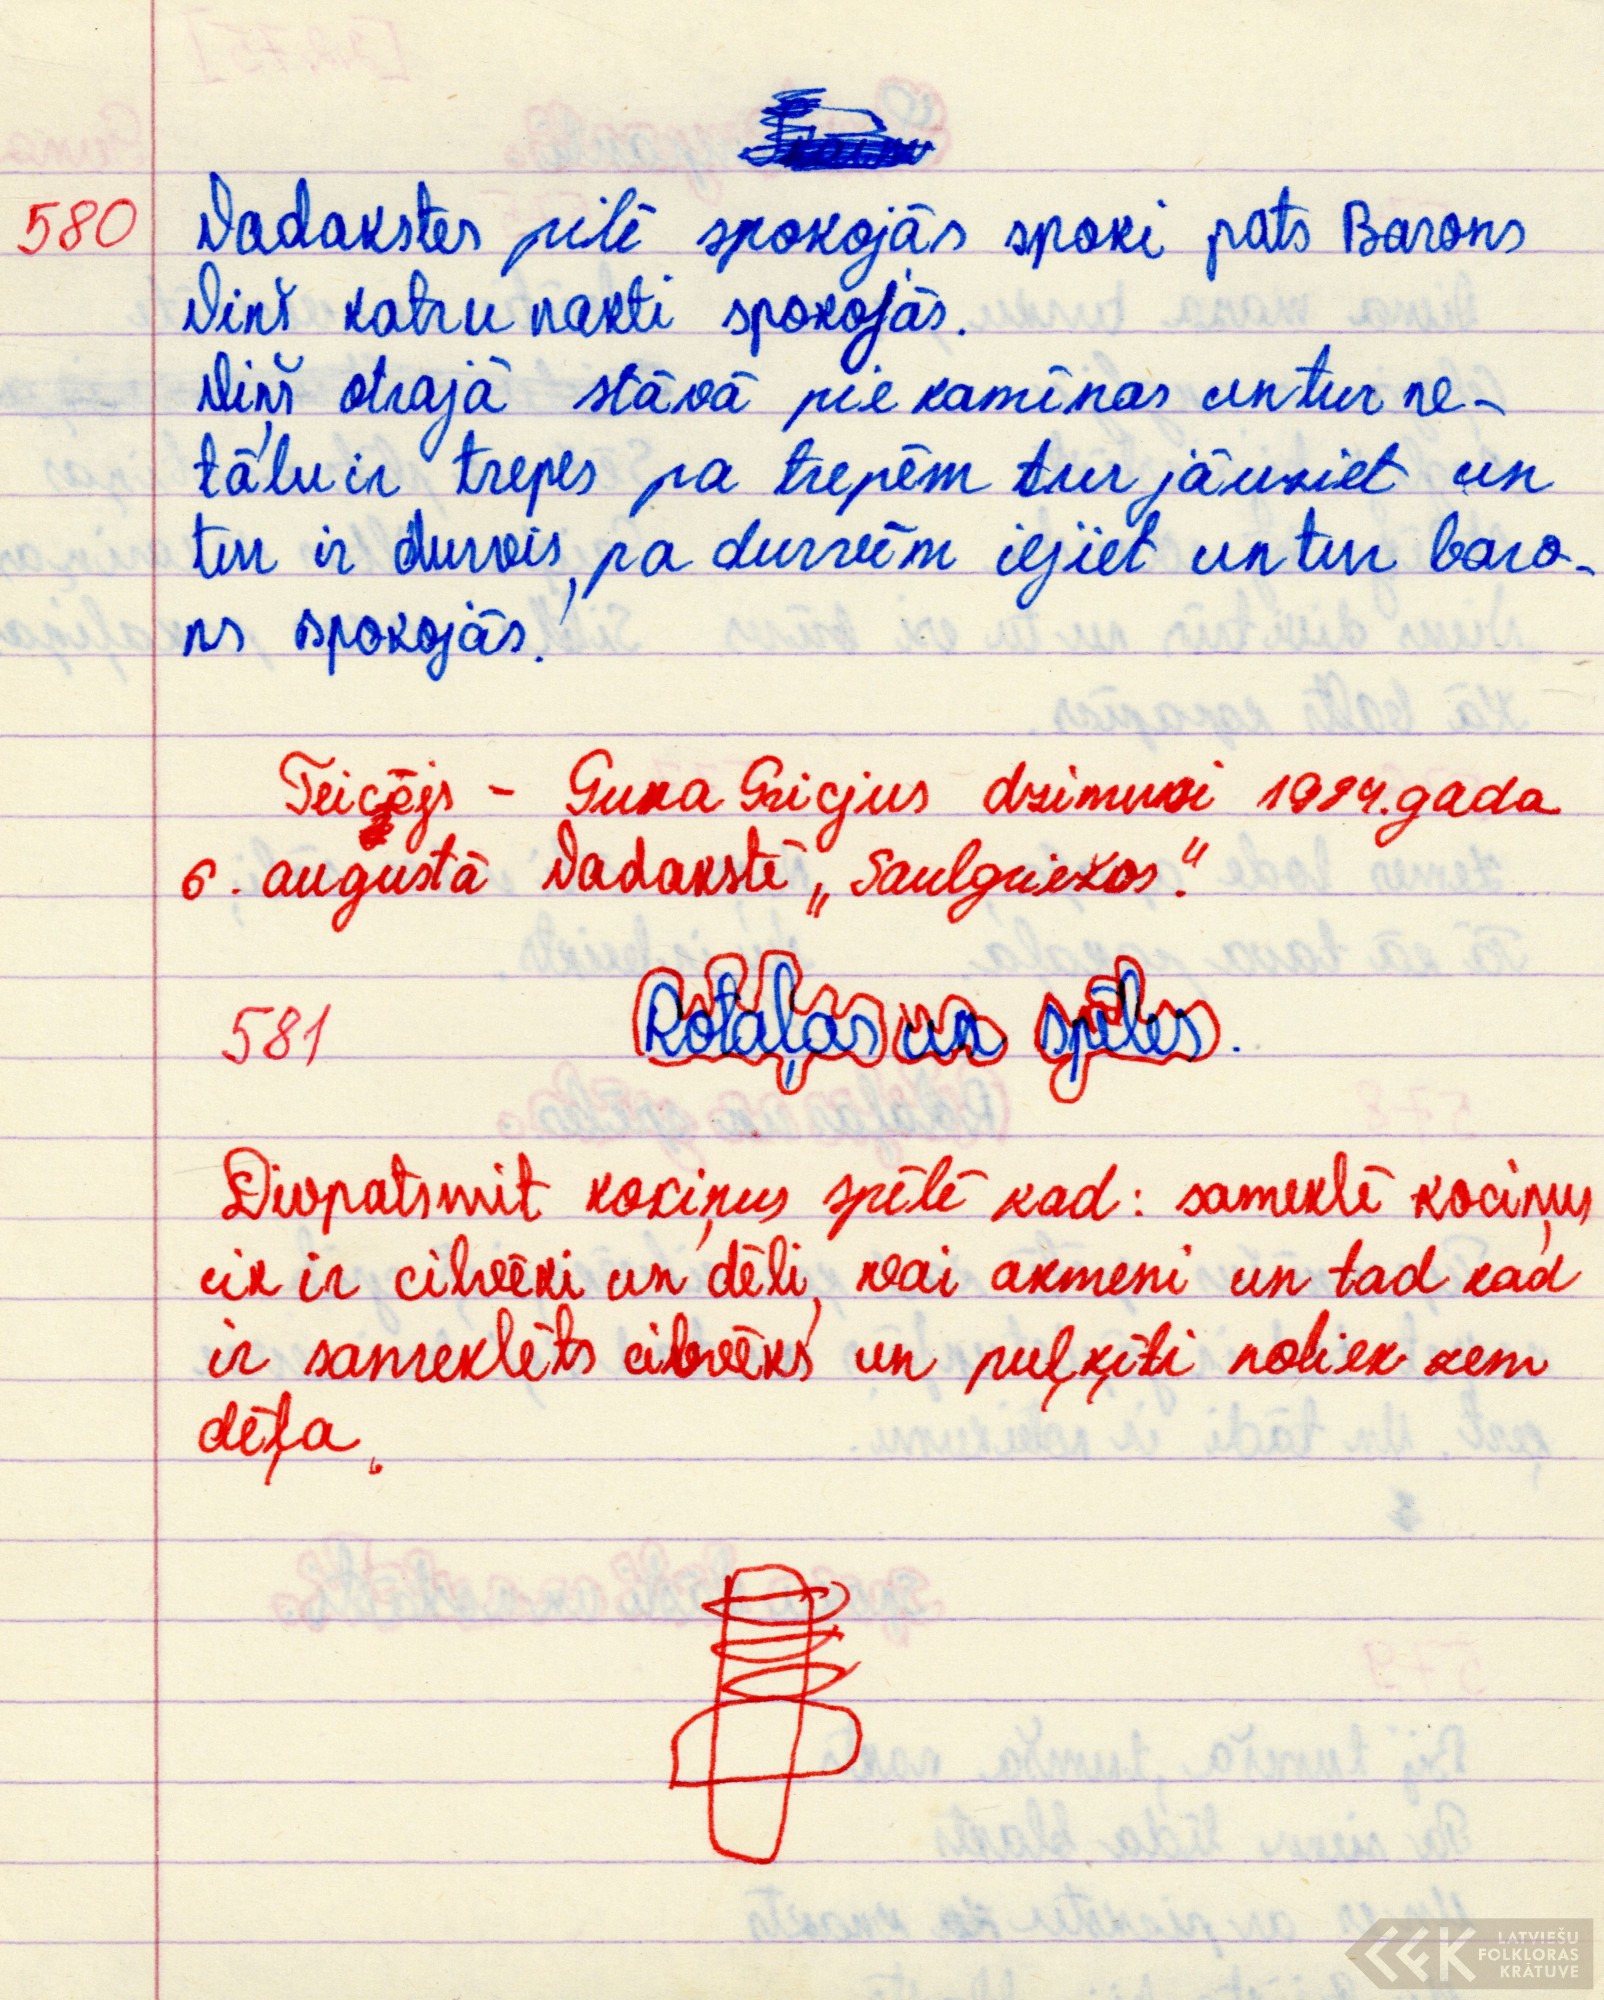 580
Vadakstes pilē spokojās spoki pats Barons
Viņš katru nakti spokojās.
Viņš otrajā stāvā pie kamīnas un tur ne-
tālu ir trepes pa trepēm tur jāuziet un
tur ir durvis, pa durvēm iejiet un tur baro-
ns spokojās.
Teicējs - Guna Gricjus dzimusi 1984. gada
6. augustā Vadakstē „Saulgriežos."
581
Rotaļas un spēles.
Divpatsmit kociņus spēlē kad: sameklē kociņus
cik ir cilvēki un dēli, vai akmeni un tad kad
ir sameklēts cilvēks un puļķīti noliek zem
dēļa.
LATVIEŠU
FOLKLORAS
KRĀTUVE